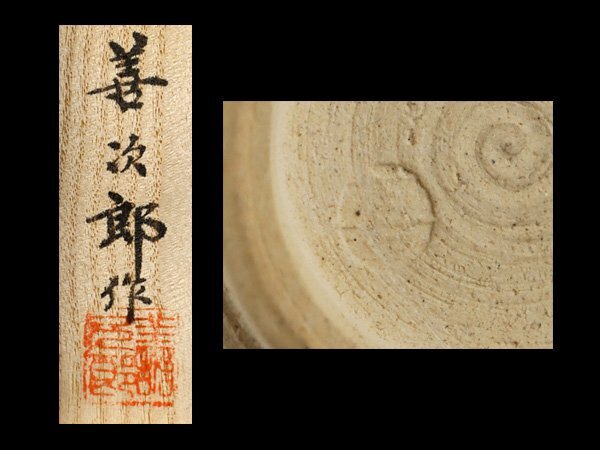 善次郎作